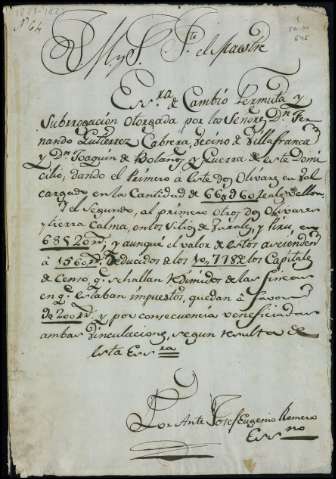 Sr. el Maestre
Essra. de Cambio Permuta y
Subrrogacion otorgada por los Senores Dn. Fer-
nando Gutierrez Cabrera, vecino de Villafranca
y Dn. Joaquin de Bolaños y Guerra de este Domi-
cilio, dando el primero a este dos Olivares en
cargado en la Cantidad de 66@960 reales de Vellon.
y el Segundo, al primero otros dos Olivares
y tierra Calma, en los sitios de y
68520 y aunque el valor de estos ascienden
á de los 10,778 de los Capitales
de Censo q. se hallan redimidos de las fincas
en q. estaban impuestos, quedan á favor
de 200 y por consecuencia veneficiadas
ambas vinculaciones, segun resulta de
esta Essra.
Por Ante Josef Eugenio Romero
Essno